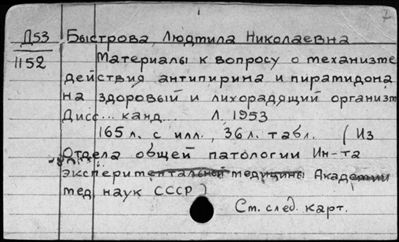 Д53 Быстрова, Людмила Николаевна
1152 Материалы к вопросу о механизме
действия антипирина и пирамидона
на здоровый и лихорадящий организм
Дисс... канд... Л. 1953
165 л. с илл., 36 л. табл. (Из
Отдела общей патологии Ин-та
экспериментальной медицины Академии
мед. наук СССР)
См. след. карт.